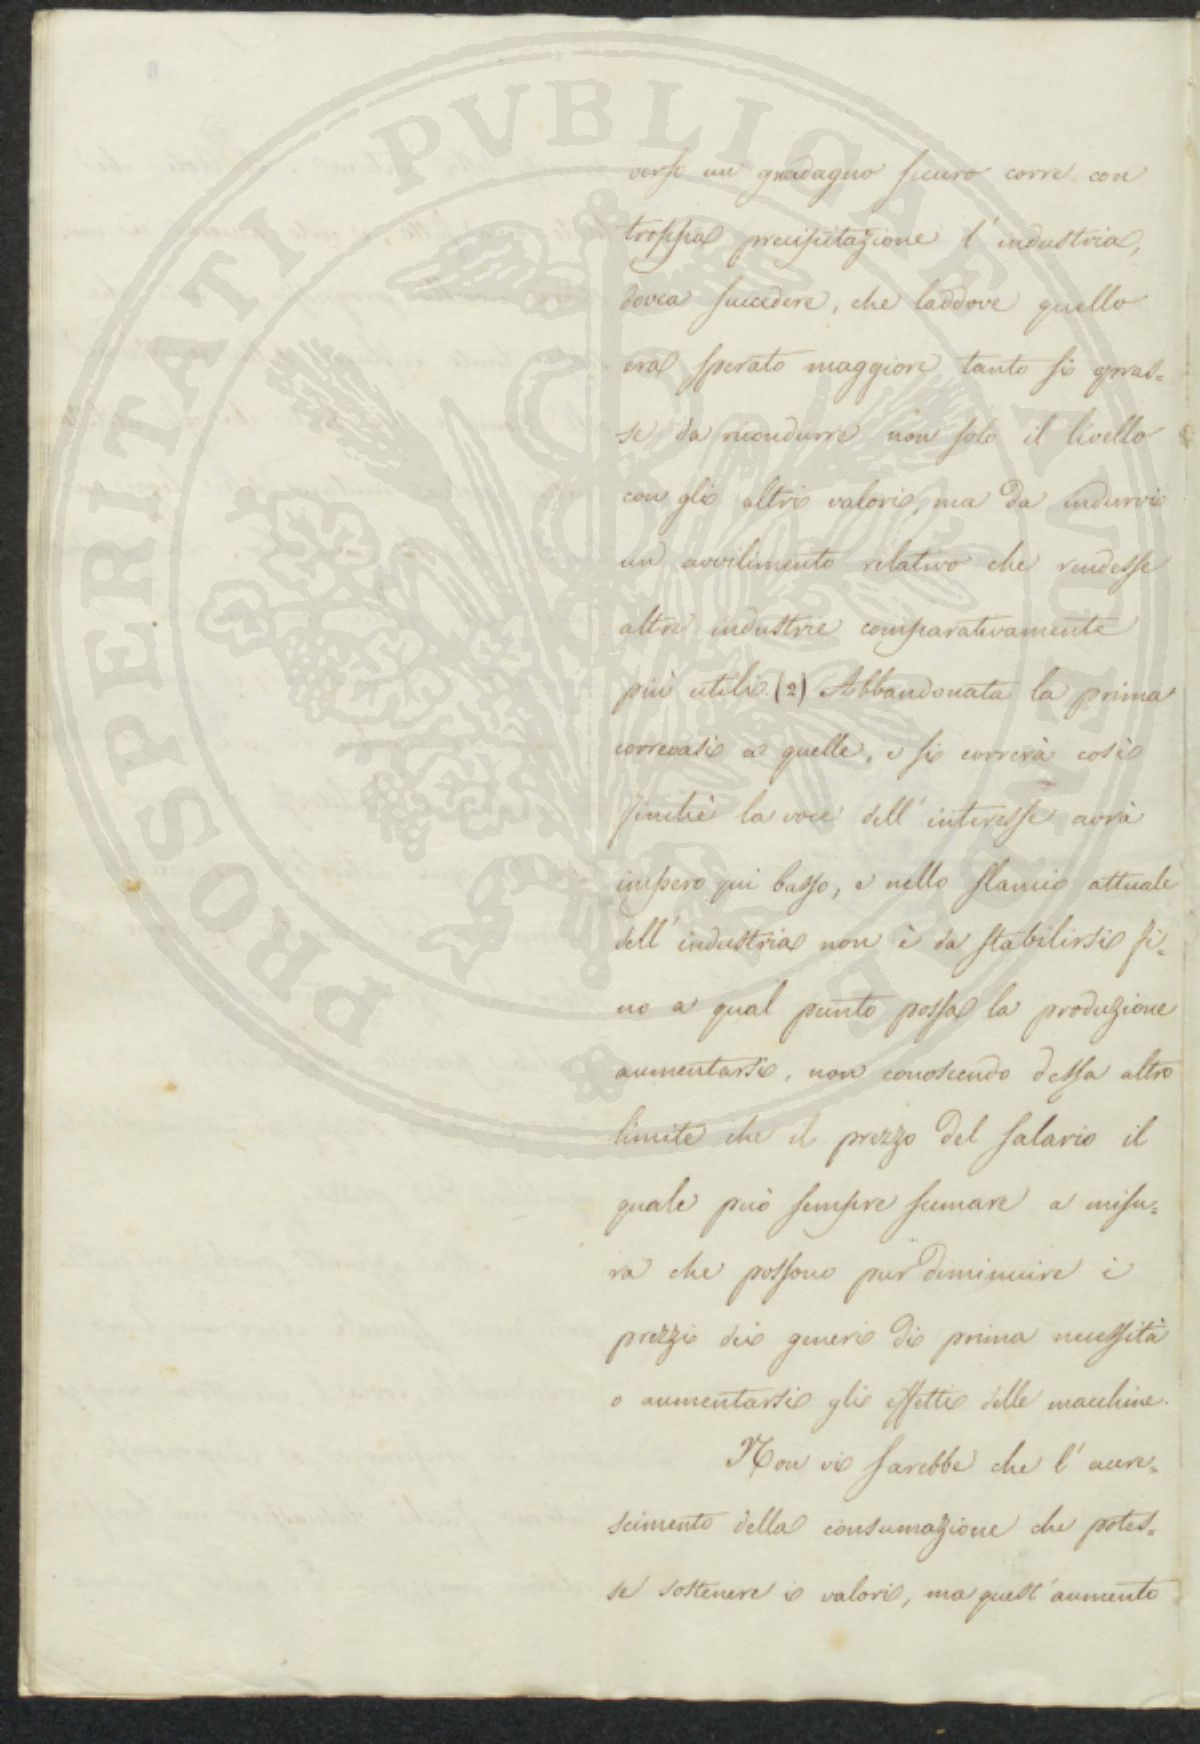 PROSPERITATI PUBLICAE AUGENDAE
verso un guadagno sicuro corre con
troppa precipitazione l'industria,
dovea succedere, che laddove quello
era sperato maggiore tanto si
se da ricondurre non solo il livello
con gli altri valori, ma da indurvi
un avvilimento relativo che rendesse
altre industrie comparativamente
più utili. (2) Abbandonata la prima
correvasi a quelle, e si correrà così
finchè la voce dell'interesse avrà
impero qui basso, e nello slancio attuale
dell'industria non è da stabilirsi fi=
no a qual punto possa la produzione
aumentarsi, non conoscendo dessa altro
limite che il prezzo del salario il
quale può sempre scemare a misu=
ra che possono pur diminuire i
prezzi dei generi di prima necessità
o aumentarsi gli effetti delle macchine.
Non vi sarebbe che l'accre=
scimento della consumazione che potes=
se sostenere i valori, ma quest'aumento